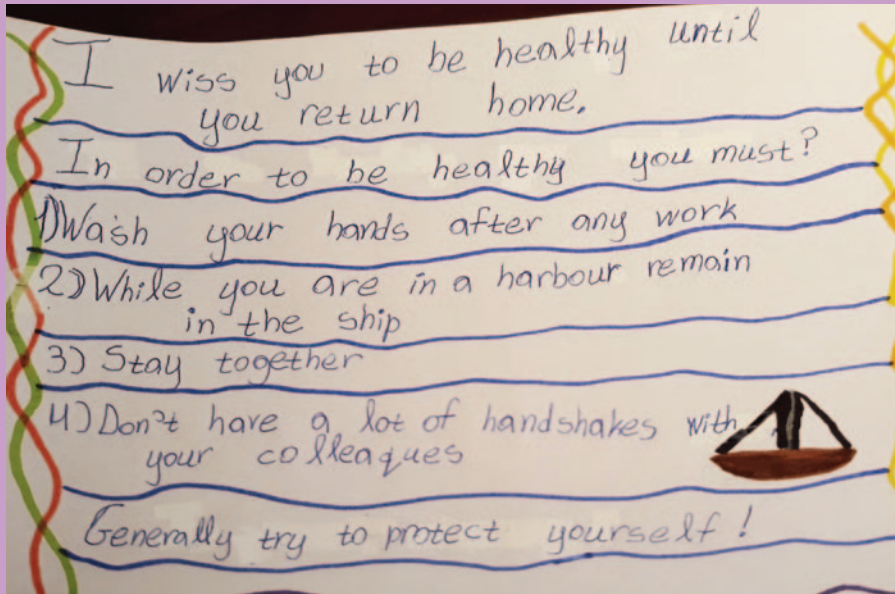 I wiss you to be healthy until
you return home.
In order to be healthy you must?
1) Wash your hands after any work
2) While you are in a harbour remain
in the ship
3) Stay together
4) Don't have a lot of handshakes with
your colleaques
Generally try to protect yourself!